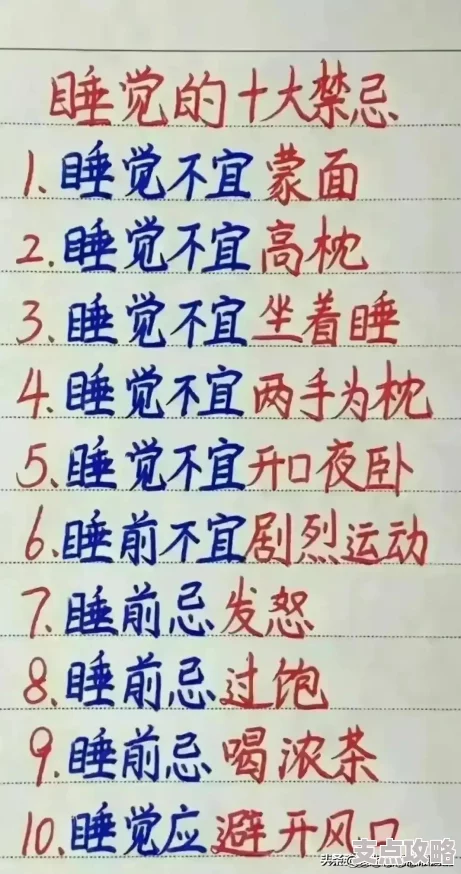 睡觉的十大禁忌
1.睡觉不宜蒙面
2.睡觉不宜高枕
3.睡觉不宜坐着睡
4.睡觉不宜两手为枕
5.睡觉不宜开口夜卧
6.睡前不宜剧烈运动
7.睡前忌发怒
8.睡前忌过饱
9.睡前忌喝浓茶
10.睡觉应避开风口
支点攻略